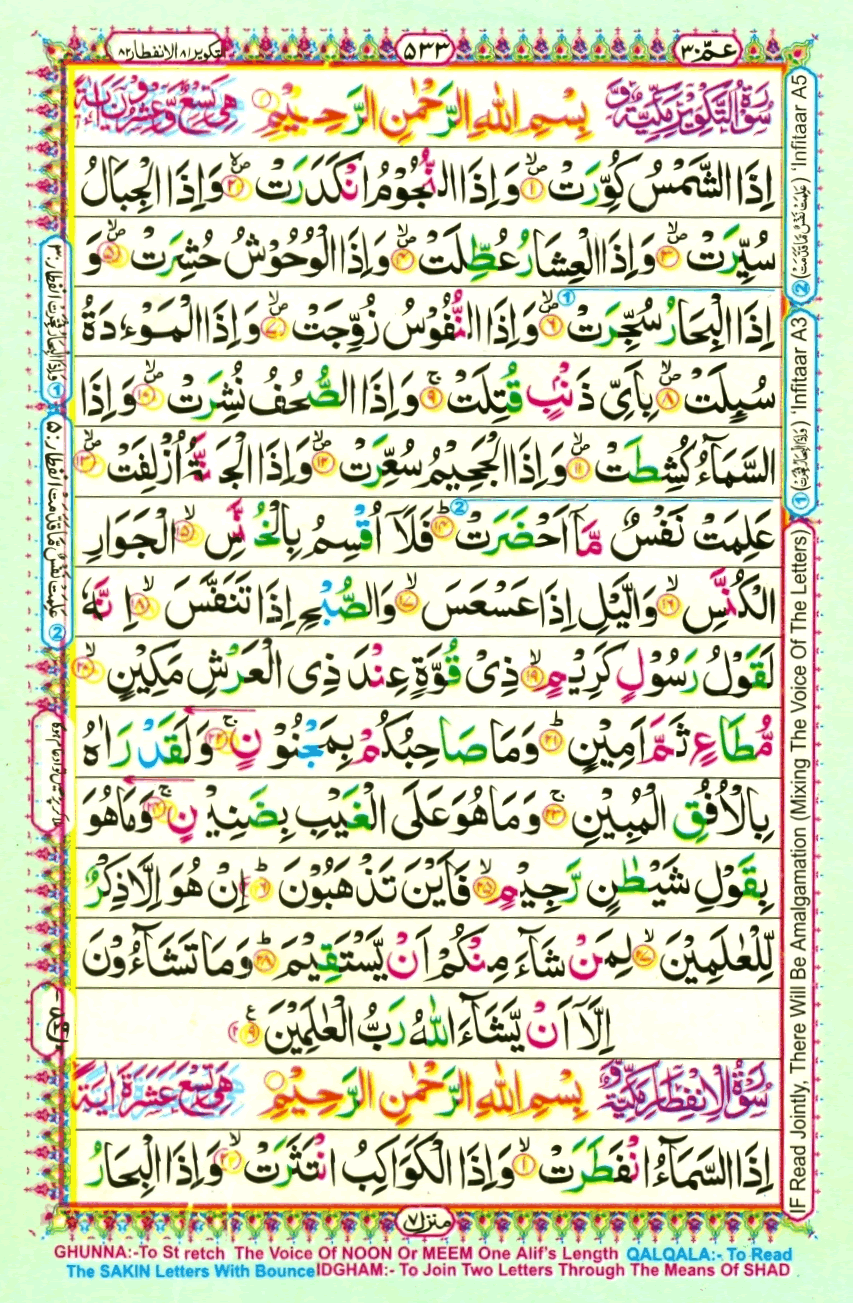 التكوير ٨١ الانفطار ٨٢
٥٣٣
عمّ ٣٠
سُوْرَةُ التَّكْوِيْرِ مَكِّيَّةٌ وَّ بِسْمِ اللّٰهِ الرَّحْمٰنِ الرَّحِيْمِ ○ هِيَ تِسْعٌ وَّعِشْرُوْنَ اٰيَةً
اِذَا الشَّمْسُ كُوِّرَتْ ۙ۱ وَاِذَا النُّجُوْمُ انْكَدَرَتْ ۙ۲ وَاِذَا الْجِبَالُ
سُيِّرَتْ ۙ۳ وَاِذَا الْعِشَارُ عُطِّلَتْ ۙ۴ وَاِذَا الْوُحُوْشُ حُشِرَتْ ۙ۵ وَ
اِذَا الْبِحَارُ سُجِّرَتْ ۙ۶ وَاِذَا النُّفُوْسُ زُوِّجَتْ ۙ۷ وَاِذَا الْمَوْءٗدَةُ
سُىِٕلَتْ ۙ۸ بِاَىِّ ذَنْۢبٍ قُتِلَتْ ۚ۹ وَاِذَا الصُّحُفُ نُشِرَتْ ۙ۱۰ وَاِذَا
السَّمَآءُ كُشِطَتْ ۙ۱۱ وَاِذَا الْجَحِيْمُ سُعِّرَتْ ۙ۱۲ وَاِذَا الْجَنَّةُ اُزْلِفَتْ ۙ۱۳
عَلِمَتْ نَفْسٌ مَّاۤ اَحْضَرَتْ ؕ۱۴ فَلَاۤ اُقْسِمُ بِالْخُنَّسِ ۙ۱۵ الْجَوَارِ
الْكُنَّسِ ۙ۱۶ وَالَّيْلِ اِذَا عَسْعَسَ ۙ۱۷ وَالصُّبْحِ اِذَا تَنَفَّسَ ۙ۱۸ اِنَّهٗ
لَقَوْلُ رَسُوْلٍ كَرِيْمٍ ۙ۱۹ ذِىْ قُوَّةٍ عِنْدَ ذِى الْعَرْشِ مَكِيْنٍ ۙ۲۰
مُّطَاعٍ ثَمَّ اَمِيْنٍ ؕ۲۱ وَمَا صَاحِبُكُمْ بِمَجْنُوْنٍ ۚ۲۲ وَلَقَدْ رَاٰهُ
بِالْاُفُقِ الْمُبِيْنِ ۚ۲۳ وَمَا هُوَ عَلَى الْغَيْبِ بِضَنِيْنٍ ۚ۲۴ وَمَا هُوَ
بِقَوْلِ شَيْطٰنٍ رَّجِيْمٍ ۙ۲۵ فَاَيْنَ تَذْهَبُوْنَ ؕ۲۶ اِنْ هُوَ اِلَّا ذِكْرٌ
لِّلْعٰلَمِيْنَ ۙ۲۷ لِمَنْ شَآءَ مِنْكُمْ اَنْ يَّسْتَقِيْمَ ؕ۲۸ وَمَا تَشَآءُوْنَ
اِلَّاۤ اَنْ يَّشَآءَ اللّٰهُ رَبُّ الْعٰلَمِيْنَ ۲۹ ع
سُوْرَةُ الْاِنْفِطَارِ مَكِّيَّةٌ وَّ بِسْمِ اللّٰهِ الرَّحْمٰنِ الرَّحِيْمِ ○ هِيَ تِسْعَ عَشَرَةَ اٰيَةً
اِذَا السَّمَآءُ انْفَطَرَتْ ۙ۱ وَاِذَا الْكَوَاكِبُ انْتَثَرَتْ ۙ۲ وَاِذَا الْبِحَارُ
منزل ٧
② (عَلِمَتْ نَفْسٌ مَّا قَدَّمَتْ) 'Infitaar A5
① (وَاِذَا الْبِحَارُ فُجِّرَتْ) 'Infitaar A3
IF Read Jointly, There Will Be Amalgamation (Mixing The Voice Of The Letters)
① وَاِذَا الْبِحَارُ فُجِّرَتْ انفطار ٣
② عَلِمَتْ نَفْسٌ مَّا قَدَّمَتْ انفطار ٥
GHUNNA:-To St retch The Voice Of NOON Or MEEM One Alif's Length QALQALA:- To Read
The SAKIN Letters With Bounce IDGHAM:- To Join Two Letters Through The Means Of SHAD